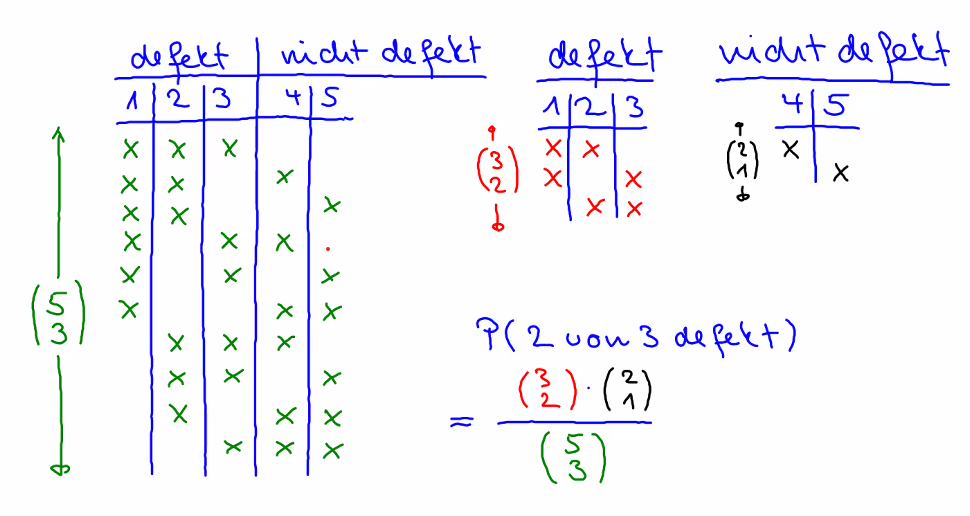 defekt | nicht defekt
1 | 2 | 3 | 4 | 5
x x x
x x x
x x x
x x x
x x x
x x x
x x x
x x x
x x x
x x x
(5
3)
defekt
1 | 2 | 3
(3
2)
x x
x x
x x
nicht defekt
4 | 5
(2
1)
x
x
P(2 von 3 defekt)
= (3 2) · (2 1)
(5 3)